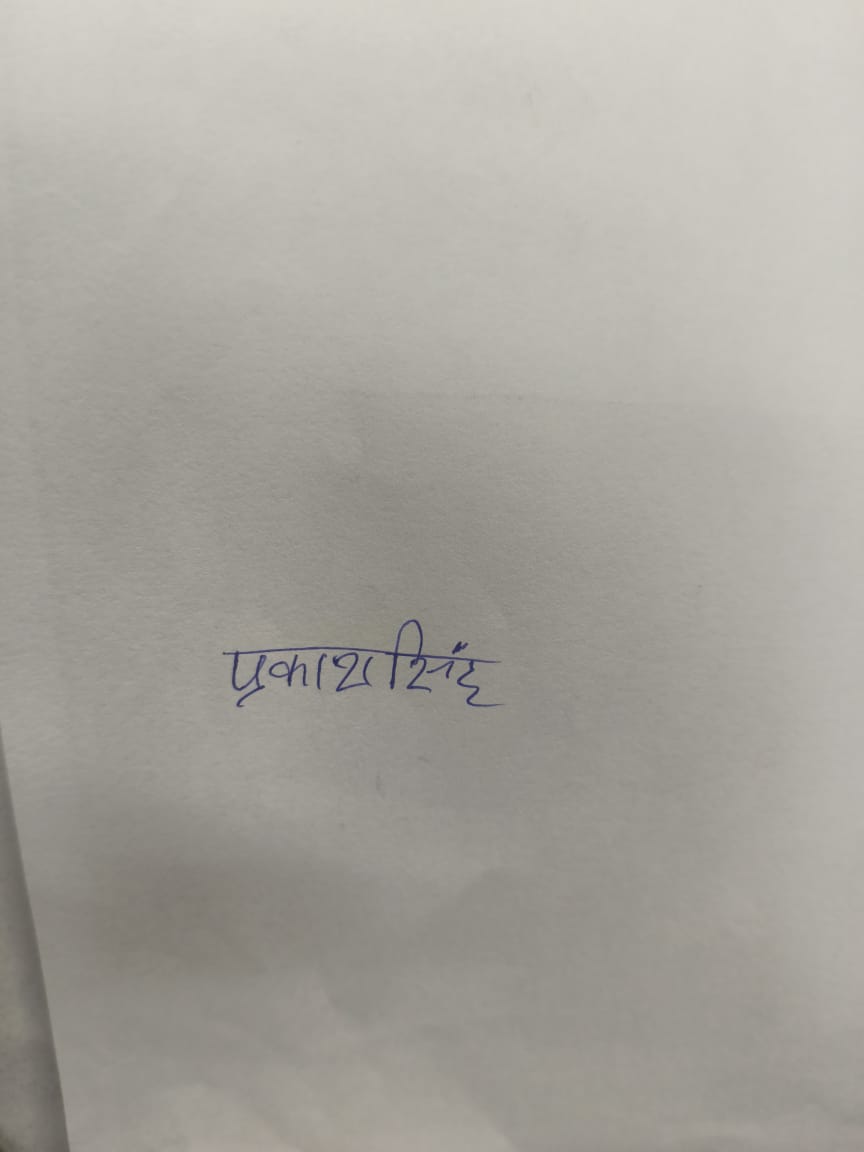 प्रकाश सिंह